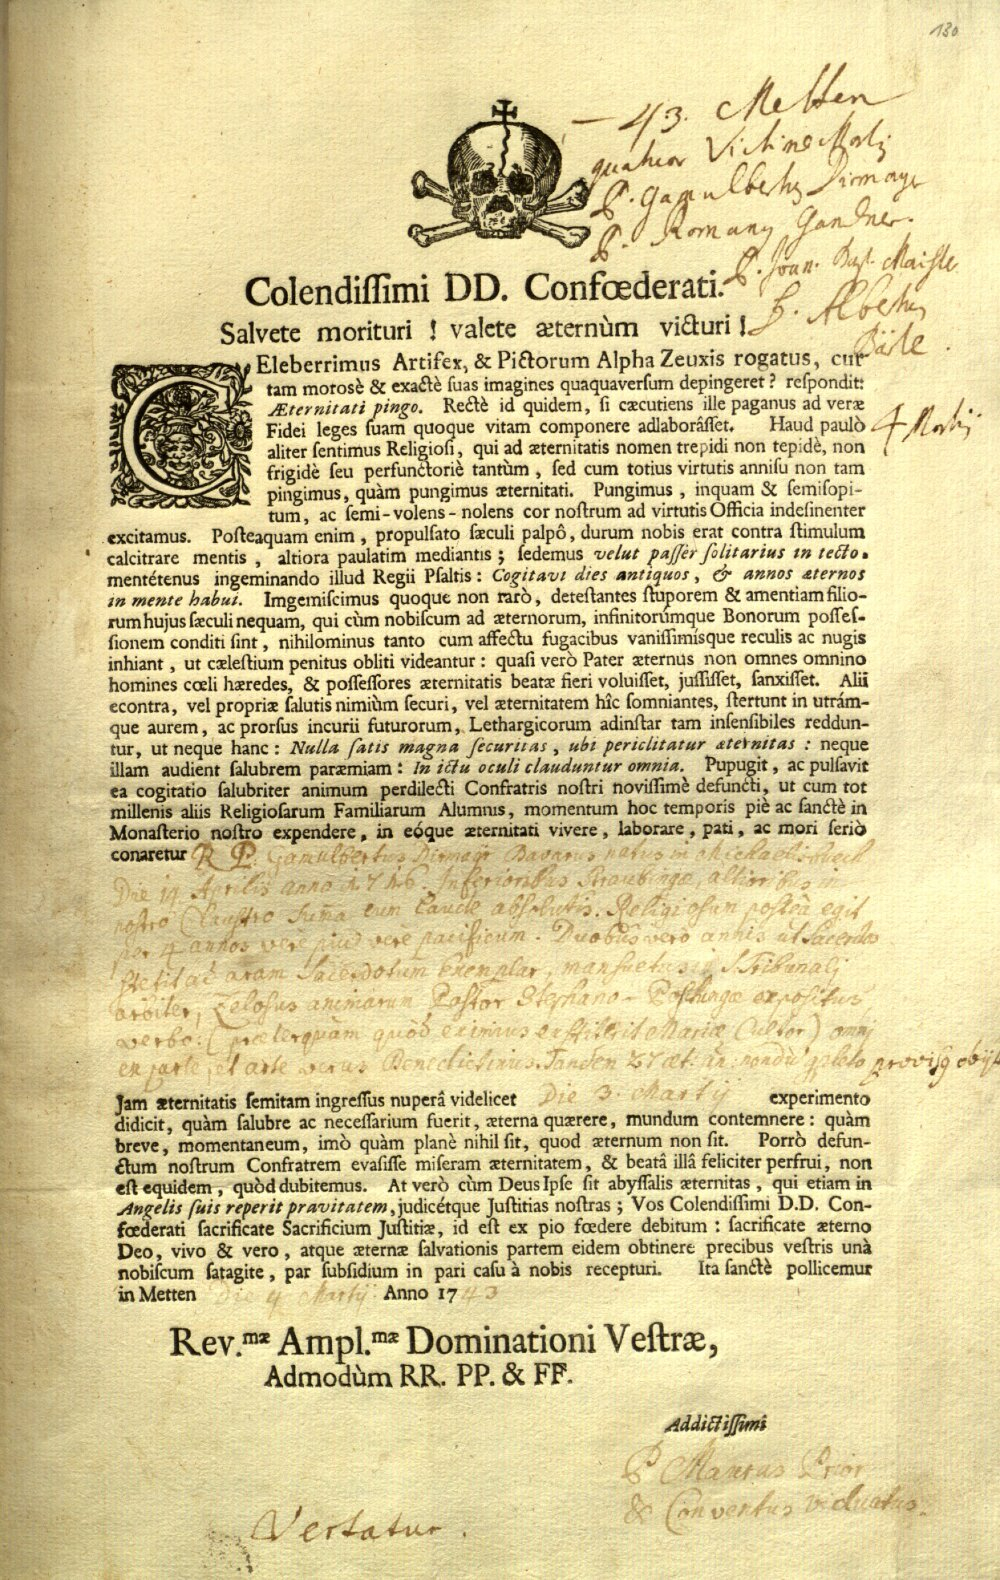 130
— 43. Metten
quatuor Victimae Mortis
P. Gamulbertus Dirmayr
P. Romanus Gandner.
P. Joan. Bapt. Maisle
F. Albertus
4 Martij
Colendissimi DD. Confœderati.
Salvete morituri ! valete æternùm victuri !
CEleberrimus Artifex, & Pictorum Alpha Zeuxis rogatus, cur
tam morosè & exactè suas imagines quaquaversum depingeret ? respondit:
Æternitati pingo. Rectè id quidem, si cæcutiens ille paganus ad veræ
Fidei leges suam quoque vitam componere adlaborâsset. Haud paulò
aliter sentimus Religiosi, qui ad æternitatis nomen trepidi non tepidè, non
frigidè seu perfunctoriè tantùm, sed cum totius virtutis annisu non tam
pingimus, quàm pungimus æternitati. Pungimus, inquam & semisopi-
tum, ac semi-volens-nolens cor nostrum ad virtutis Officia indesinenter
excitamus. Posteaquam enim, propulsato sæculi palpô, durum nobis erat contra stimulum
calcitrare mentis, altiora paulatim mediantis; sedemus velut passer solitarius in tecto.
mentétenus ingeminando illud Regii Psaltis: Cogitavi dies antiquos, & annos æternos
in mente habui. Imgemiscimus quoque non rarò, detestantes stuporem & amentiam filio-
rum hujus sæculi nequam, qui cùm nobiscum ad æternorum, infinitorúmque Bonorum posses-
sionem conditi sint, nihilominus tanto cum affectu fugacibus vanissimisque reculis ac nugis
inhiant, ut cælestium penitus obliti videantur: quasi verò Pater æternus non omnes omnino
homines cœli hæredes, & possessores æternitatis beatæ fieri voluisset, jussisset, sanxisset. Alii
econtra, vel propriæ salutis nimiùm securi, vel æternitatem hîc somniantes, stertunt in utrám-
que aurem, ac prorsus incurii futurorum, Lethargicorum adinstar tam insensibiles reddun-
tur, ut neque hanc: Nulla satis magna securitas, ubi periclitatur æternitas: neque
illam audient salubrem paræmiam: In ictu oculi clauduntur omnia. Pupugit, ac pulsavit
ea cogitatio salubriter animum perdilecti Confratris nostri novissimè defuncti, ut cum tot
millenis aliis Religiosarum Familiarum Alumnis, momentum hoc temporis piè ac sanctè in
Monasterio nostro expendere, in eóque æternitati vivere, laborare, pati, ac mori seriò
conaretur R. P. Gamulbertus Dirmayr Bavarus natus in Michaelsbuech
Die 14 Aprilis anno 1716. Inferioribus Straubingæ, altioribus in
nostro Claustro summa cum laude absolutis. Religiosum postea egit
per 4 annos vere pium vere pacificum. Duobus vero annis ut Sacerdos
stetit ad aram Sacerdotum Exemplar, mansuetus in S. Tribunali
arbiter, Zelosus animarum Pastor Stephano-Poschingæ expositus
verbo: (præterquam quòd eximius exstiterit Mariæ Cultor) omni
ex parte, et arte verus Benedictinus. Tandem 27 æt. an: nondum expleto provisus obijt
Jam æternitatis semitam ingressus nuperâ videlicet Die 3. Martij experimento
didicit, quàm salubre ac necessarium fuerit, æterna quærere, mundum contemnere: quàm
breve, momentaneum, imò quàm planè nihil sit, quod æternum non sit. Porrò defun-
ctum nostrum Confratrem evasisse miseram æternitatem, & beatâ illâ feliciter perfrui, non
est equidem, quòd dubitemus. At verò cùm Deus Ipse sit abyssalis æternitas, qui etiam in
Angelis suis reperit pravitatem, judicétque Justitias nostras; Vos Colendissimi D.D. Con-
fœderati sacrificate Sacrificium Justitiæ, id est ex pio fœdere debitum: sacrificate æterno
Deo, vivo & vero, atque æternæ salvationis partem eidem obtinere precibus vestris unà
nobiscum satagite, par subsidium in pari casu à nobis recepturi. Ita sanctè pollicemur
in Metten Die 4 Martij Anno 1743
Rev.mæ Ampl.mæ Dominationi Vestræ,
Admodùm RR. PP. & FF.
Addictissimi
P. Maurus Prior
& Conventus viduatus.
Vertatur.